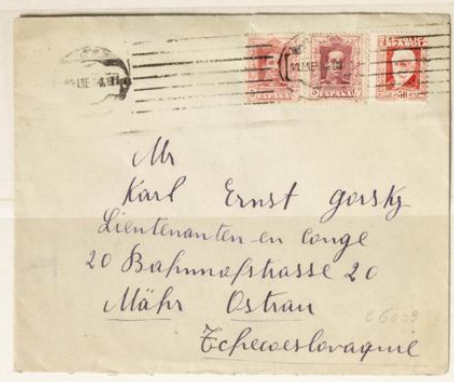 ESPAÑA ESPAÑA
Mr
Karl Ernst Gorsky
Lientenanten en Conge
20 Bahnhofstrasse 20
Mähr Ostrau
Tchecoeslovaquie